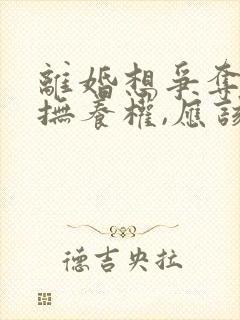 離婚想爭奪
撫養權,應該
德吉央拉